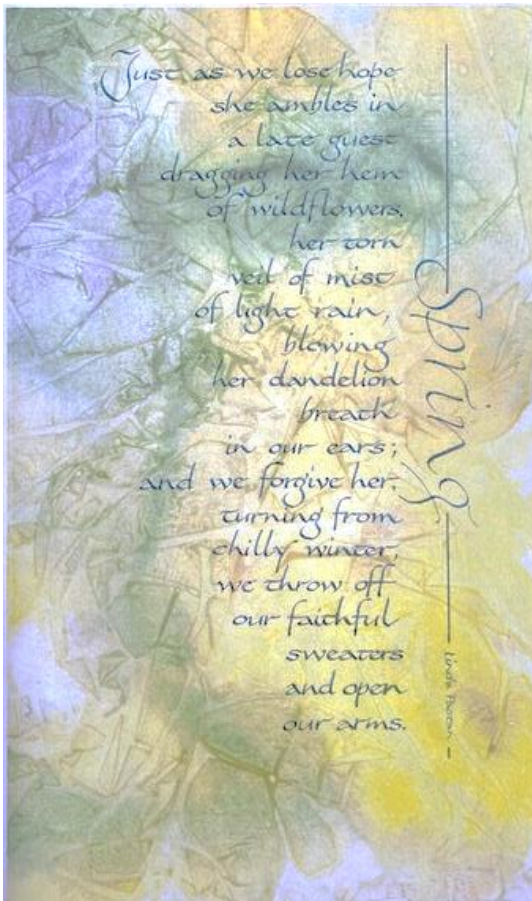 Just as we lose hope
she ambles in
a late guest
dragging her hem
of wildflowers,
her torn
veil of mist
of light rain,
blowing
her dandelion
breath
in our ears;
and we forgive her,
turning from
chilly winter,
we throw off
our faithful
sweaters
and open
our arms.
Spring
Linda Pastan